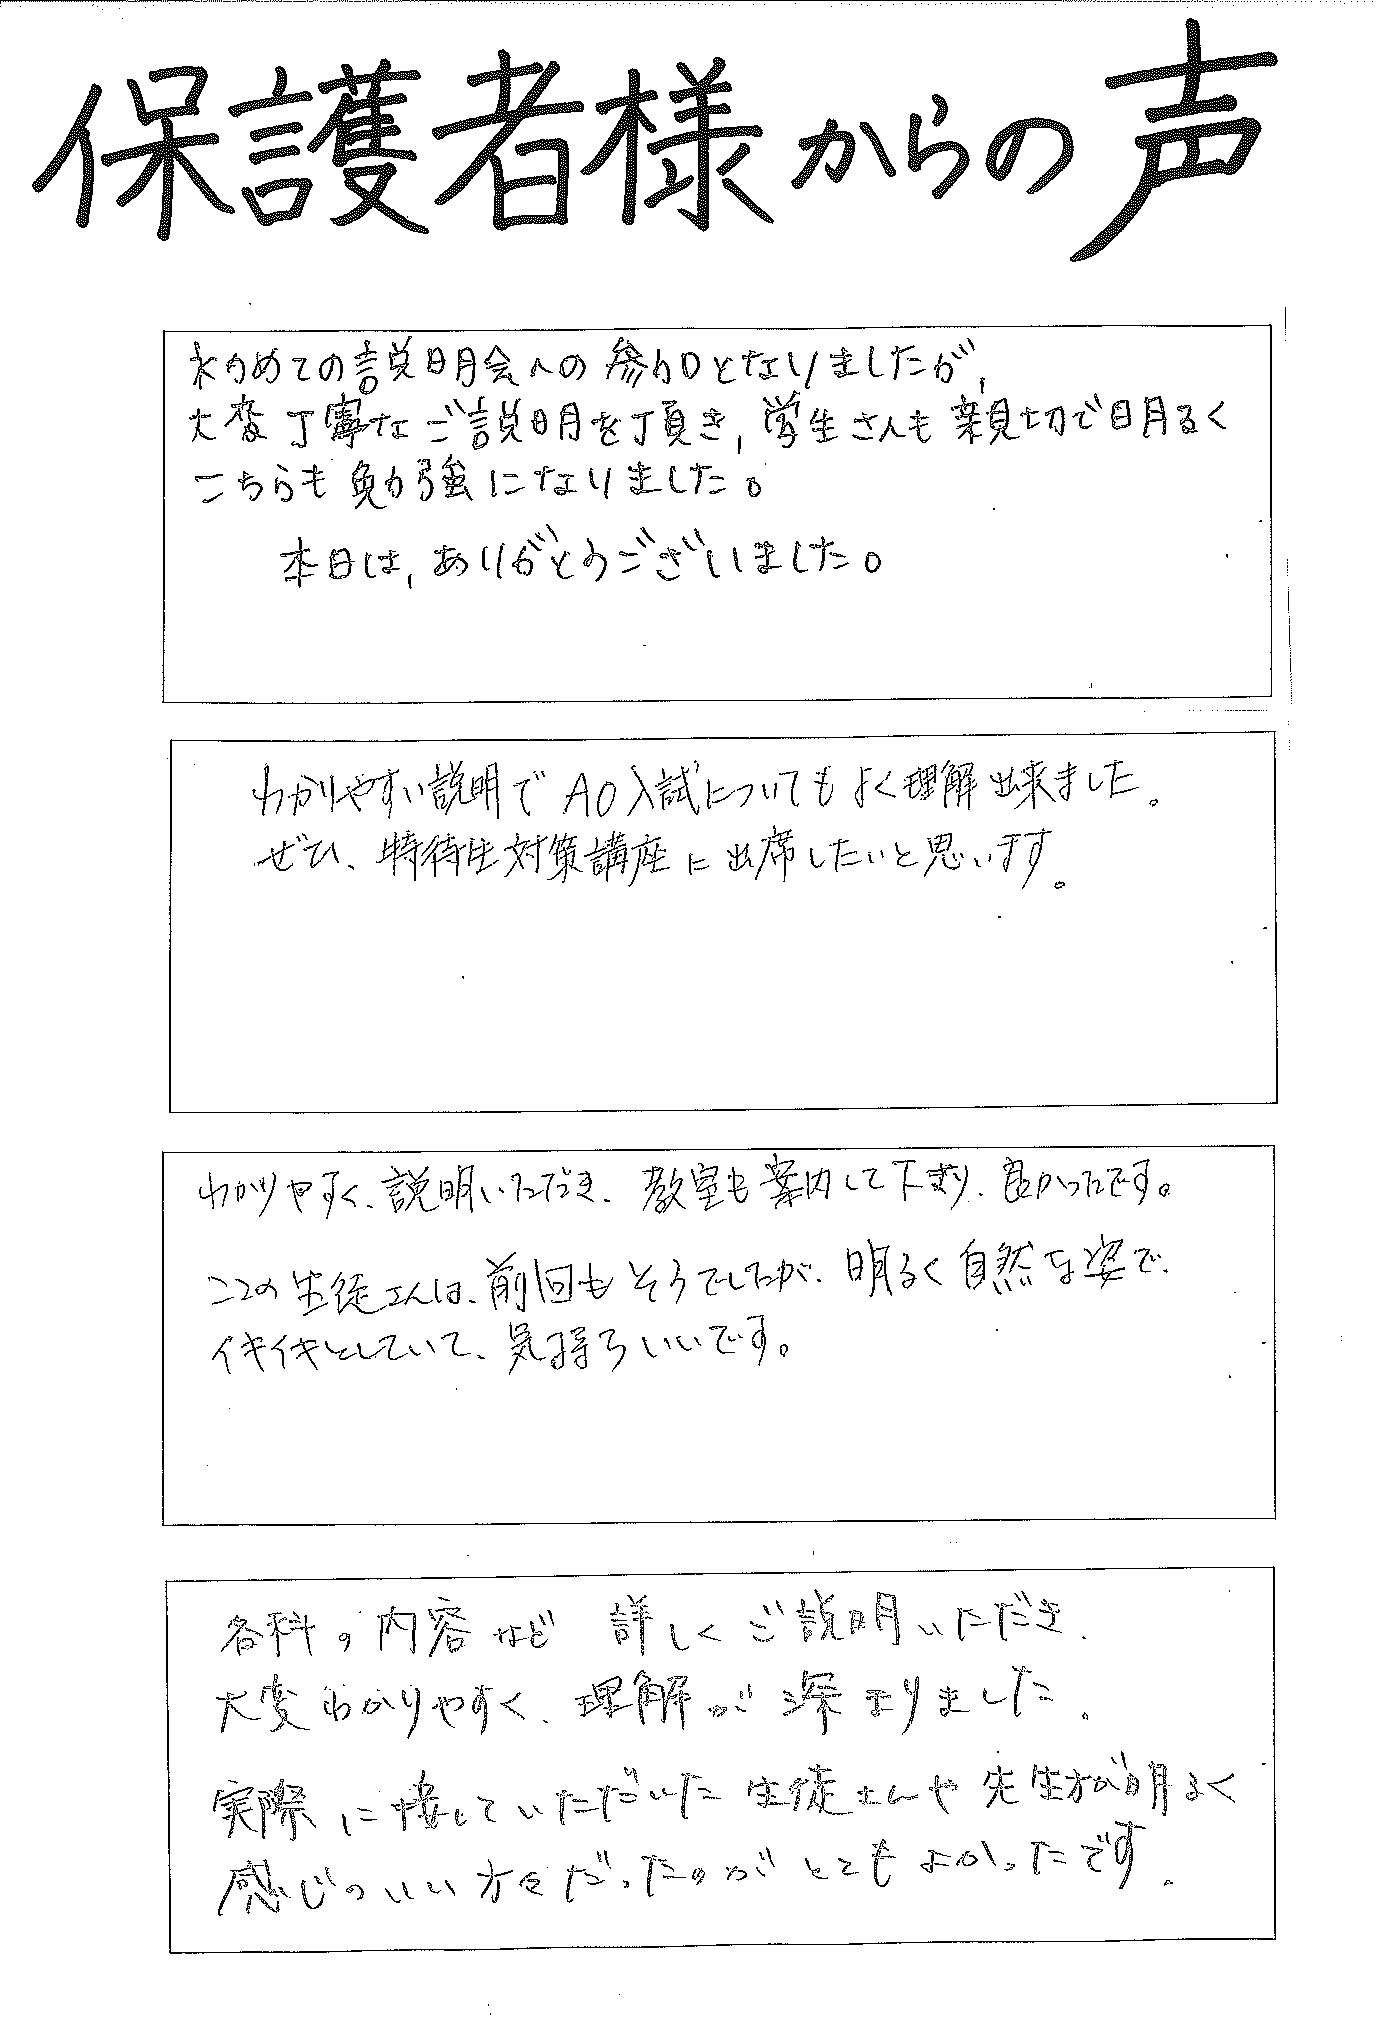 保護者様からの声
初めての説明会への参加となりましたが,
大変丁寧なご説明を頂き,学生さんも親切で明るく
こちらも勉強になりました。
本日は,ありがとうございました。
わかりやすい説明でAO入試についてもよく理解出来ました。
ぜひ、特待生対策講座に出席したいと思います。
わかりやすく、説明いただき、教室も案内して下さり、良かったです。
ココの生徒さんは、前回もそうでしたが、明るく自然な姿で、
イキイキとしていて、気持ちいいです。
各科の内容など 詳しくご説明いただき、
大変わかりやすく、理解が深まりました。
実際に接していただいた生徒さんや先生方が明るく
感じのいい方々だったのがとてもよかったです。